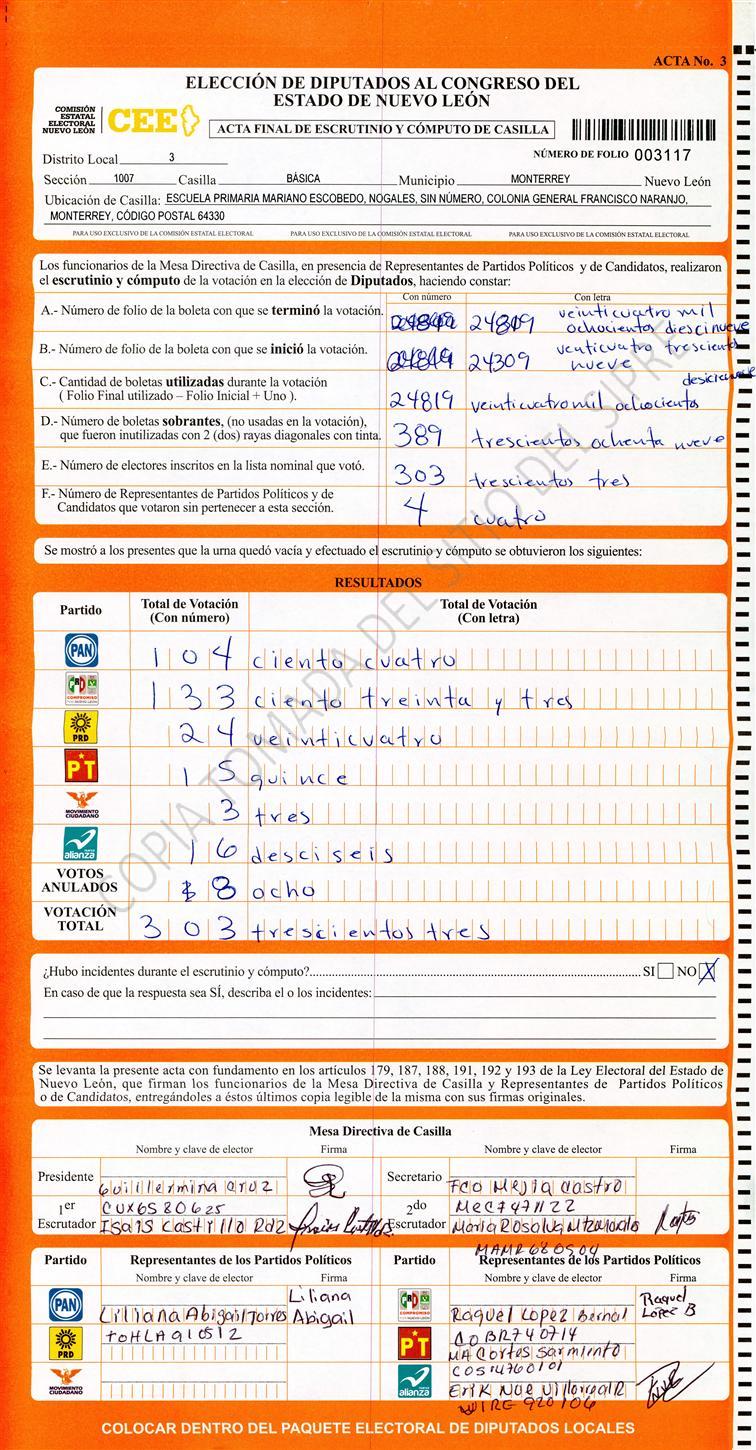 ACTA No. 3
ELECCIÓN DE DIPUTADOS AL CONGRESO DEL
ESTADO DE NUEVO LEÓN
COMISIÓN
ESTATAL
ELECTORAL
NUEVO LEÓN
CEE
ACTA FINAL DE ESCRUTINIO Y CÓMPUTO DE CASILLA
Distrito Local 3
NÚMERO DE FOLIO 003117
Sección 1007 Casilla BÁSICA Municipio MONTERREY Nuevo León
Ubicación de Casilla: ESCUELA PRIMARIA MARIANO ESCOBEDO, NOGALES, SIN NÚMERO, COLONIA GENERAL FRANCISCO NARANJO,
MONTERREY, CÓDIGO POSTAL 64330
PARA USO EXCLUSIVO DE LA COMISIÓN ESTATAL ELECTORAL PARA USO EXCLUSIVO DE LA COMISIÓN ESTATAL ELECTORAL PARA USO EXCLUSIVO DE LA COMISIÓN ESTATAL ELECTORAL
Los funcionarios de la Mesa Directiva de Casilla, en presencia de Representantes de Partidos Políticos y de Candidatos, realizaron
el escrutinio y cómputo de la votación en la elección de Diputados, haciendo constar:
Con número Con letra
A.- Número de folio de la boleta con que se terminó la votación. 24819 veinticuatro mil
ochocientos diescinueve
B.- Número de folio de la boleta con que se inició la votación. 24309 venticuatro trescientos
nueve
C.- Cantidad de boletas utilizadas durante la votación
( Folio Final utilizado – Folio Inicial + Uno ). 24819 veinticuatro mil ochocientos
D.- Número de boletas sobrantes, (no usadas en la votación),
que fueron inutilizadas con 2 (dos) rayas diagonales con tinta. 389 trescientos ochenta nueve
E.- Número de electores inscritos en la lista nominal que votó. 303 trescientos tres
F.- Número de Representantes de Partidos Políticos y de
Candidatos que votaron sin pertenecer a esta sección. 4 cuatro
Se mostró a los presentes que la urna quedó vacía y efectuado el escrutinio y cómputo se obtuvieron los siguientes:
RESULTADOS
Partido Total de Votación Total de Votación
(Con número) (Con letra)
PAN 104 ciento cuatro
133 ciento treinta y tres
PRD 24 veinticuatro
PT 15 quince
MOVIMIENTO CIUDADANO 3 tres
alianza 16 desciseis
VOTOS
ANULADOS 8 ocho
VOTACIÓN
TOTAL 303 trescientos tres
COPIA TOMADA DEL SITIO DEL SIPRE
¿Hubo incidentes durante el escrutinio y cómputo? SI NO X
En caso de que la respuesta sea SÍ, describa el o los incidentes:
Se levanta la presente acta con fundamento en los artículos 179, 187, 188, 191, 192 y 193 de la Ley Electoral del Estado de
Nuevo León, que firman los funcionarios de la Mesa Directiva de Casilla y Representantes de Partidos Políticos
o de Candidatos, entregándoles a éstos últimos copia legible de la misma con sus firmas originales.
Mesa Directiva de Casilla
Nombre y clave de elector Firma Nombre y clave de elector Firma
Presidente Guillermina Cruz Secretario Fco Mejia Castro
1er CUX6580625 2do MEC7471122
Escrutador Isais Castrillo Rdz Escrutador Maria Rosalva
MAMR680504
Partido Representantes de los Partidos Políticos Partido Representantes de los Partidos Políticos
Nombre y clave de elector Firma Nombre y clave de elector Firma
PAN Liliana Abigail Torres Liliana Abigail
PRD TOHLA910512
MOVIMIENTO CIUDADANO
Raquel Lopez Bernal Raquel López B
LOBR740714
PT MA Cortes Sarmiento
COS14760101
alianza Erik Noe Villarreal R
VIRE 920106
COLOCAR DENTRO DEL PAQUETE ELECTORAL DE DIPUTADOS LOCALES